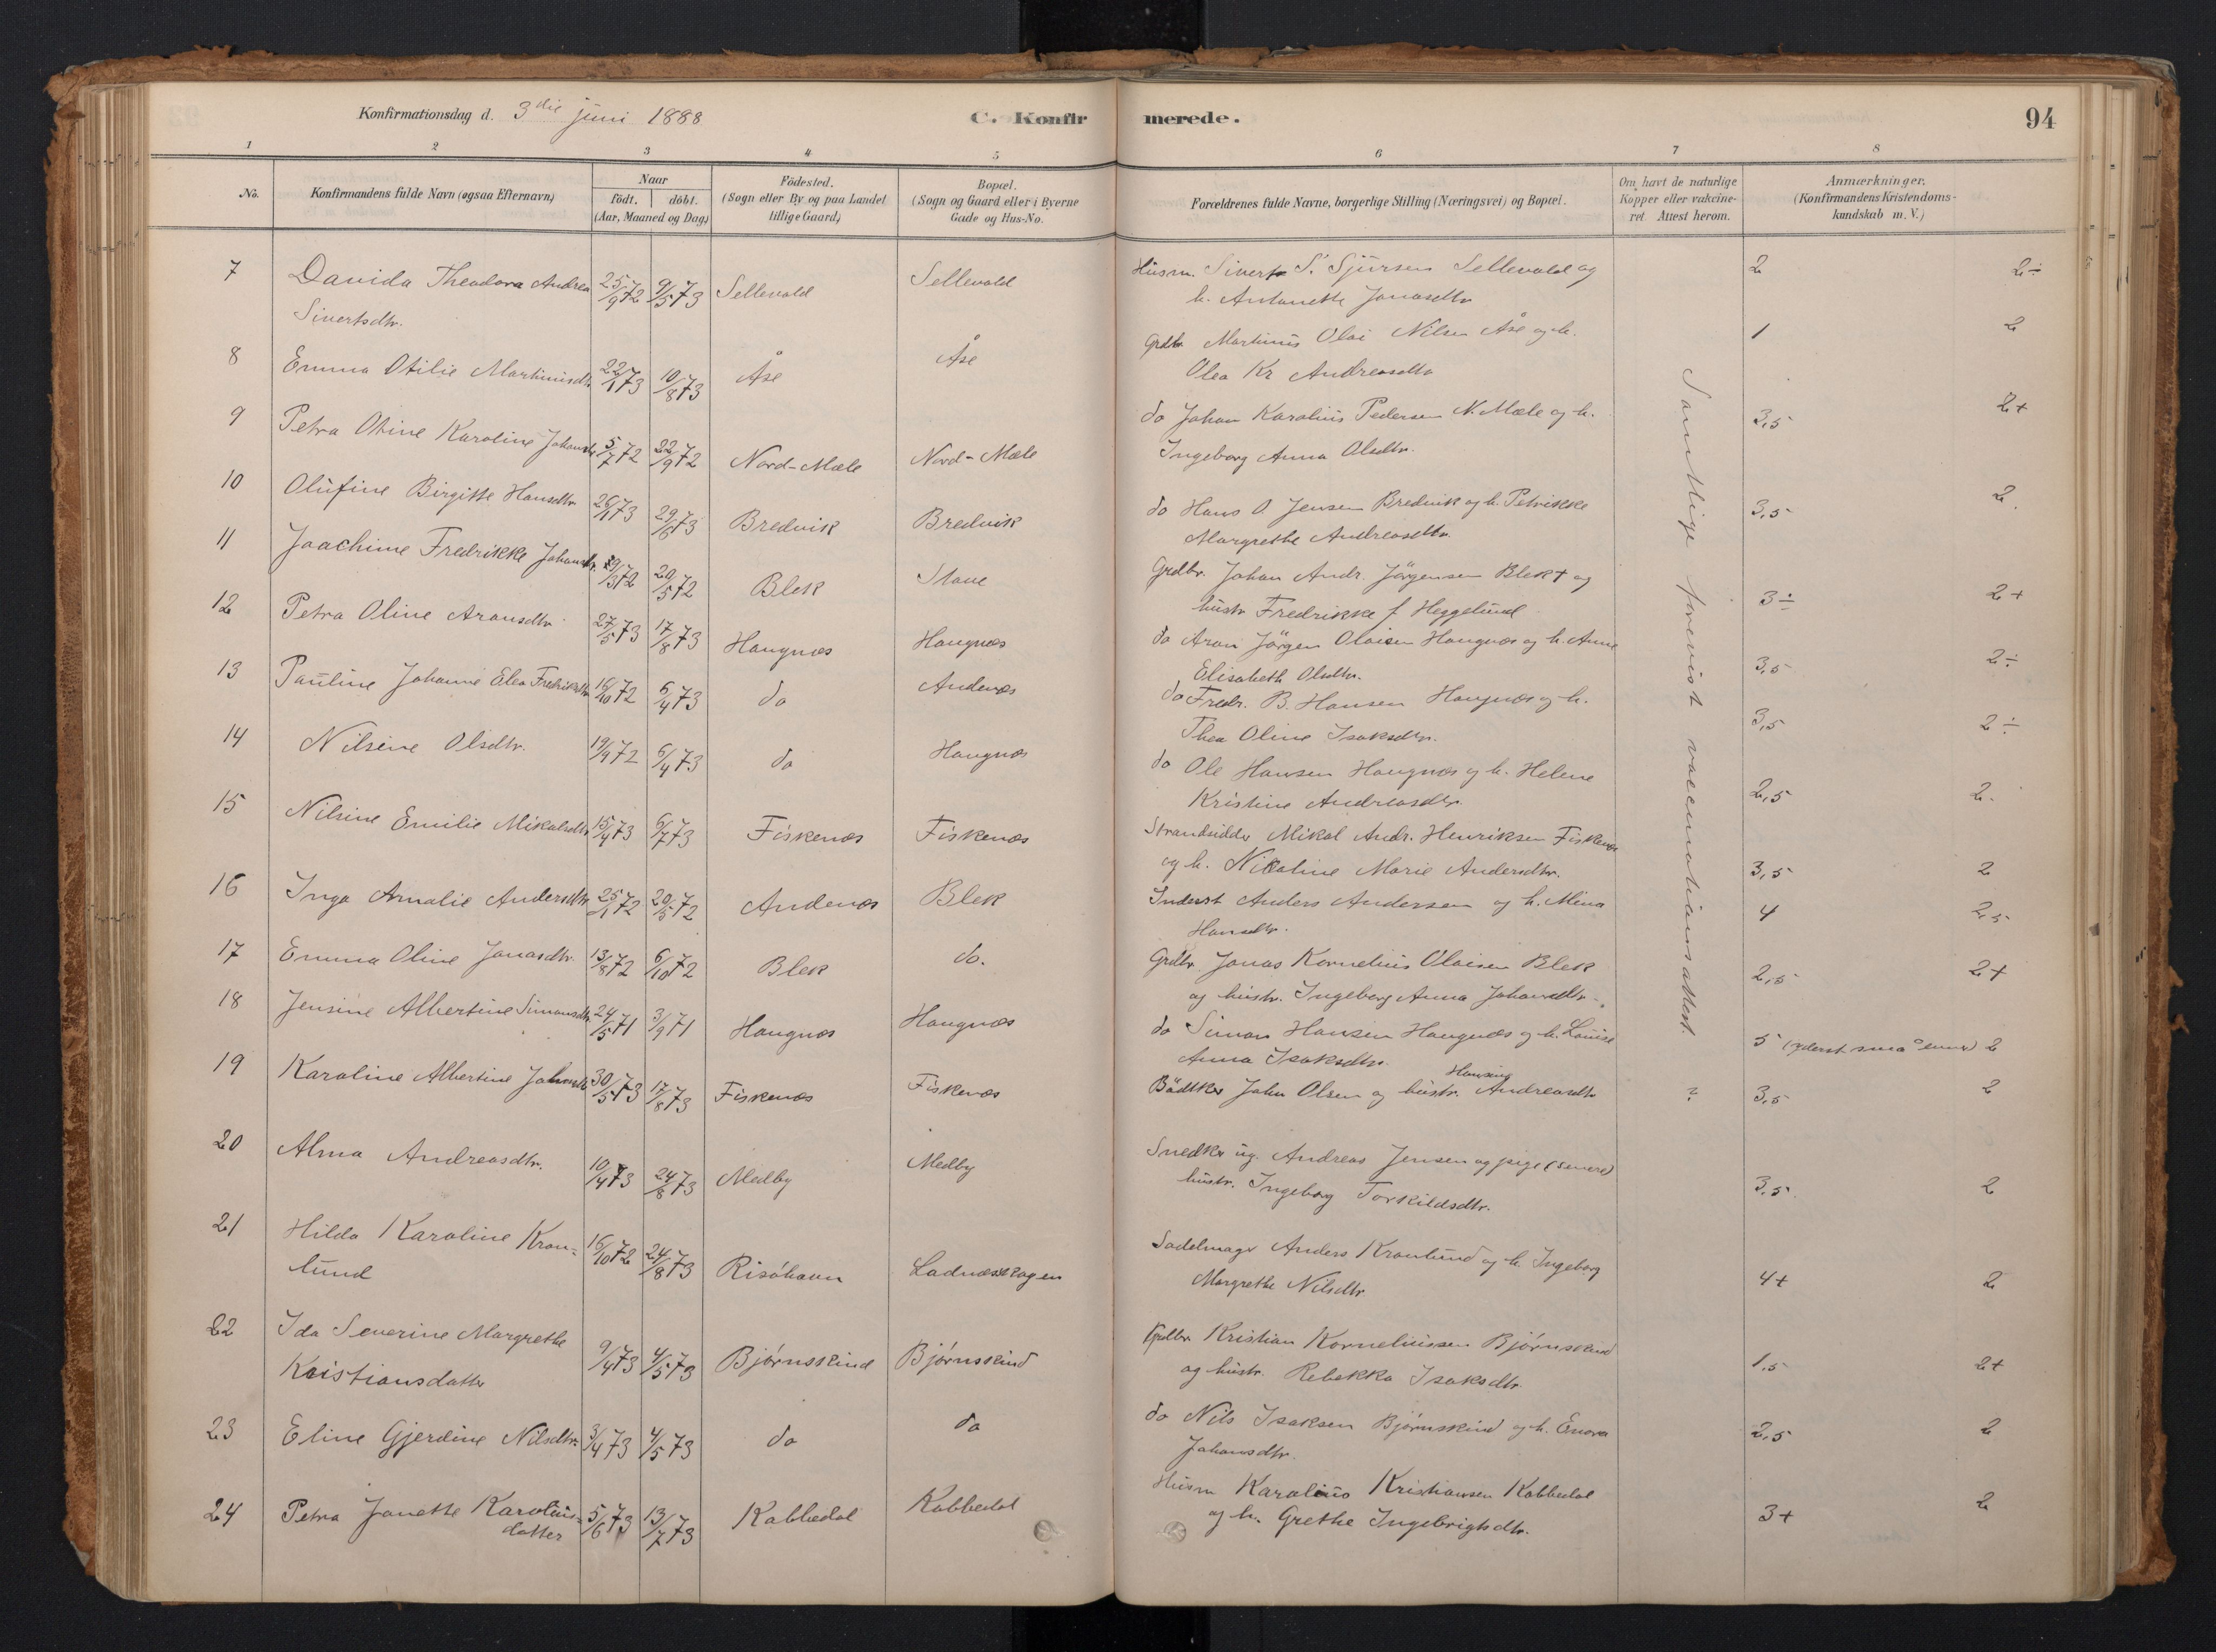 Konfirmationsdag d. 3die juni 1888
C. Konfirmerede.
94
1 2 3 4 5 6 7 8
No.
Konfirmandens fulde Navn (ogsaa Efternavn)
Naar
födt. döbt.
(Aar, Maaned og Dag)
Födested.
(Sogn eller By og paa Landet
tillige Gaard)
Bopæl.
(Sogn og Gaard eller i Byerne
Gade og Hus-No.
Forældrenes fulde Navne, borgerlige Stilling (Næringsvei) og Bopæl.
Om havt de naturlige
Kopper eller vakcine-
ret Attest herom.
Anmærkninger.
(Konfirmandens Kristendoms-
kundskab m. V.)
7 Davida Theodora Andrea 25/9 72 9/5 73 Sellevold Sellevold Husm. Sivert S. Sjursen Sellevold og 2 2÷
Sivertsdtr. h. Antonette Jonasdtr
8 Emma Otilie Martinusdtr 22/1 73 10/8 73 Åse Åse Grdbr. Martinus Olai Nilsen Åse og h. 1 2
Olea Kr Andreasdtr
9 Petra Otine Karoline Johansdtr 5/7 72 22/9 72 Nord-Mæle Nord-Mæle do Johan Karolius Pedersen N. Mæle og h. 3,5 2+
Ingeborg Anna Olsdtr.
10 Olufine Birgitte Hansdtr 26/1 73 29/6 73 Bredvik Bredvik do Hans O. Jensen Bredvik og h. Petrikke 3,5 2
Margrethe Andreasdtr.
11 Joachime Fredrikke Johansdtr. 29/3 72 20/5 72 Blek Stave Grdbr. Johan Andr. Jörgensen Blek + og 3÷ 2+
hustr. Fredrikke f. Heggelund
12 Petra Oline Aronsdtr 27/5 73 17/8 73 Haugnæs Haugnæs do Aron Jörgen Olaisen Haugnæs og h. Anne 3,5 2÷
Elisabeth Olsdtr.
13 Pauline Johanne Elea Fredriksdtr 16/10 72 6/4 73 do Andenæs do Fredr. B. Hansen Haugnæs og h. 3,5 2÷
Thea Oline Isaksdtr.
14 Nilsine Olsdtr. 19/9 72 6/4 73 do Haugnæs do Ole Hansen Haugnæs og h. Helene 2,5 2.
Kristine Andreasdtr.
15 Nilsine Emilie Mikalsdtr 15/4 73 6/7 73 Fiskenæs Fiskenæs Strandsidder Mikal Andr. Henriksen Fiskenæs 3,5 2
og h. Nikoline Marie Andersdtr.
16 Inga Amalie Andersdtr 25/1 72 20/5 72 Andenæs Blek Inderst Anders Andersen og h. Mina 4 2,5
Hansdtr.
17 Emma Oline Jonasdtr. 13/8 72 6/10 72 Blek do. Grdbr. Jonas Kornelius Olaisen Blek 2,5 2+
og hustr. Ingeborg Anna Johansdtr.
18 Jensine Albertine Simonsdtr. 24/5 71 3/9 71 Haugnæs Haugnæs do Simon Hansen Haugnæs og h. Louise 5 (yderst små evner) 2
Anna Isaksdtr.
19 Karoline Albertine Johnsdtr 30/5 73 17/8 73 Fiskenæs Fiskenæs Bödtker John Olsen og hustr. Hansine Andreasdtr ? 3,5 2
20 Alma Andreasdtr. 10/4 73 24/8 73 Medby Medby Snedker ug. Andreas Jensen og pige (senere) 3,5 2
hustr. Ingeborg Torkildsdtr.
21 Hilda Karoline Kron- 16/10 72 24/8 73 Risöhavn Ladnæsskagen Sadelmager Anders Kronlund og h. Ingeborg 4+ 2
lund Margrethe Nilsdtr
22 Ida Severine Margrethe 9/4 73 4/5 73 Bjørnskind Bjørnskind Grdbr. Kristian Korneliussen Bjørnskind 1,5 2+
Kristiansdatter og hustr. Rebekka Isaksdtr.
23 Eline Gjerdine Nilsdtr. 3/4 73 4/5 73 do do do Nils Isaksen Bjørnskind og h. Enora 2,5 2
Johansdtr.
24 Petra Janette Karolius- 5/6 73 13/7 73 Kobbedal Kobbedal Husm Karolius Kristiansen Kobbedal 3+ 2
datter og h. Grethe Ingebrigtsdtr.
Samtlige forevist vaccinationsattest.